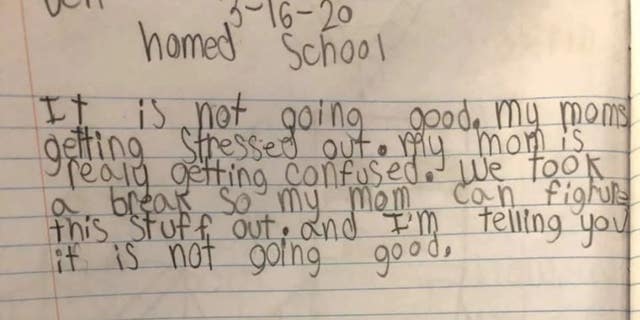 3-16-20
homed School
It is not going good. my moms
getting stressed out. My mom is
realy getting confused. We took
a break so my mom can fighure
this stuff out. and I'm telling you
it is not going good.